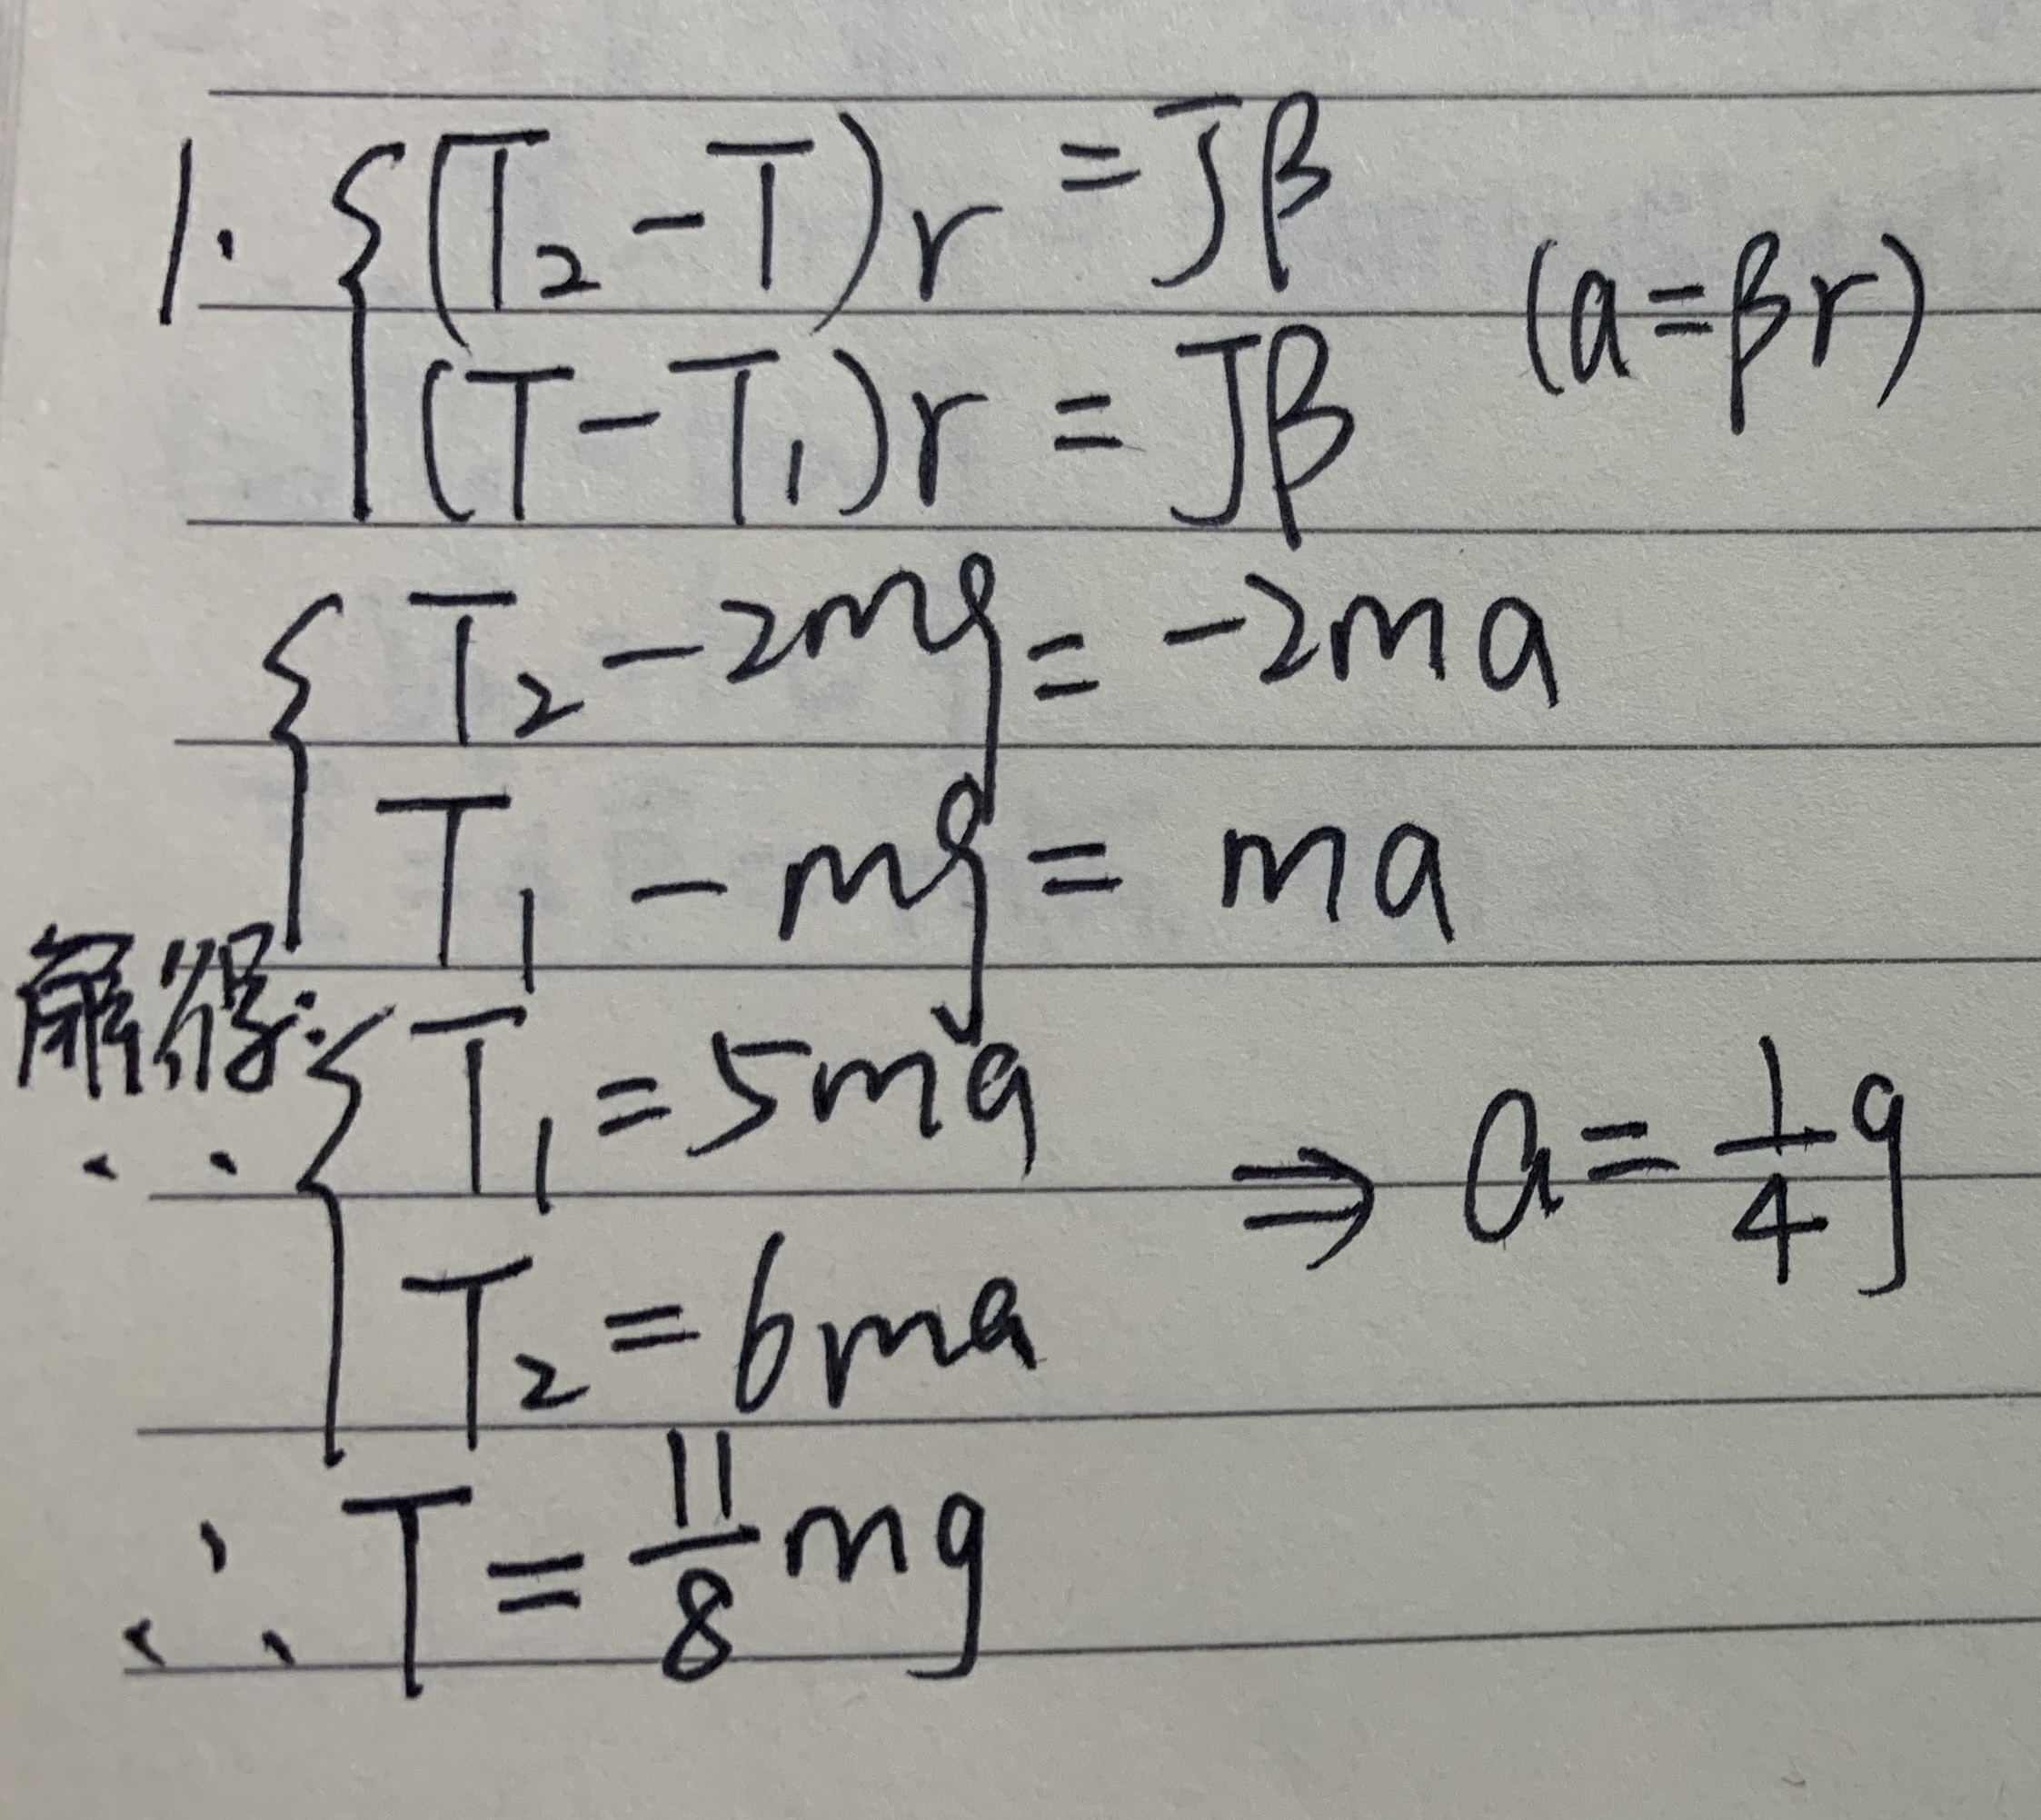 1. { (T₂ - T) r = Jβ
(T - T₁) r = Jβ (a = βr)
{ T₂ - 2mg = -2ma
T₁ - mg = ma
解得: { T₁ = 5ma
T₂ = 6ma ⇒ a = 1/4 g
∴ T = 11/8 mg